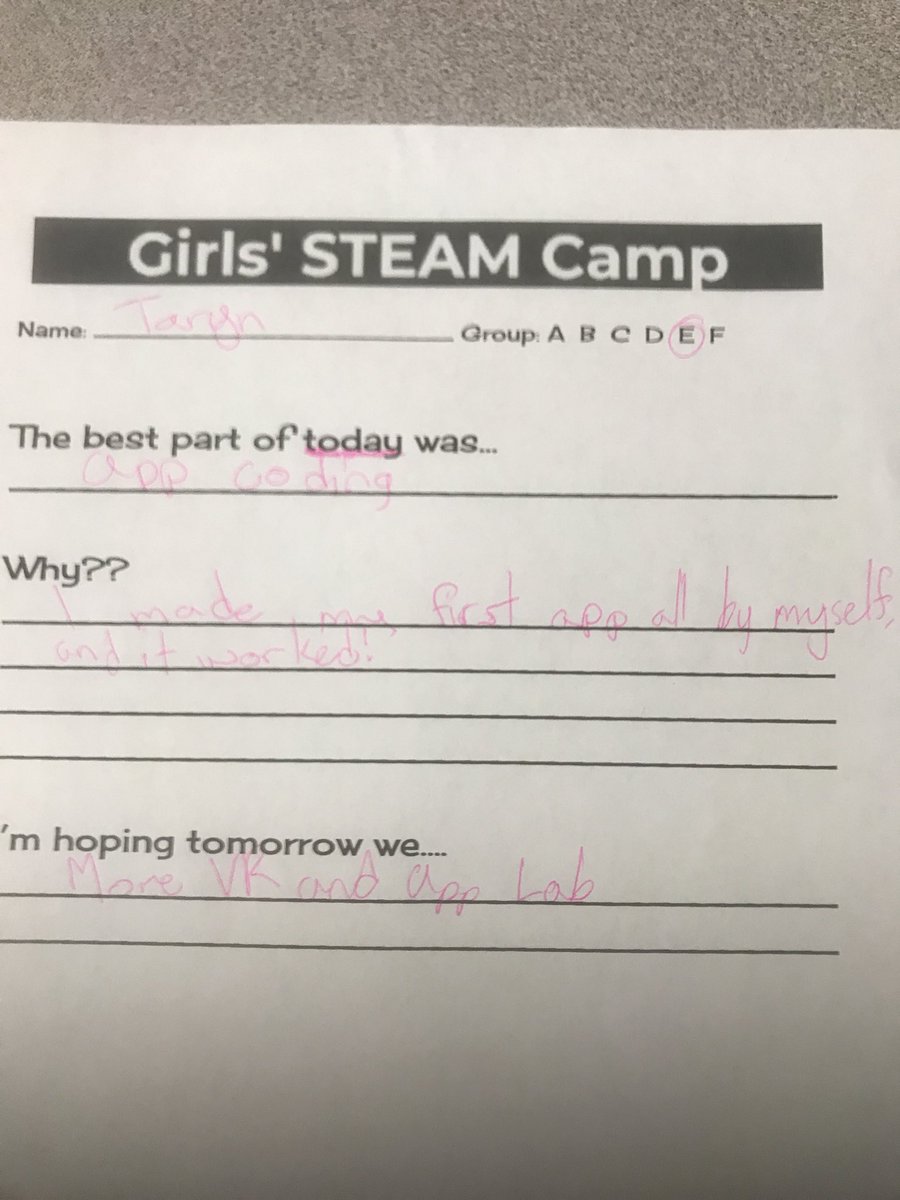 Girls' STEAM Camp
Name: Taryn Group: A B C D E F
The best part of today was...
app coding
Why??
I made my first app all by myself,
and it worked!
'm hoping tomorrow we....
More VR and app Lab